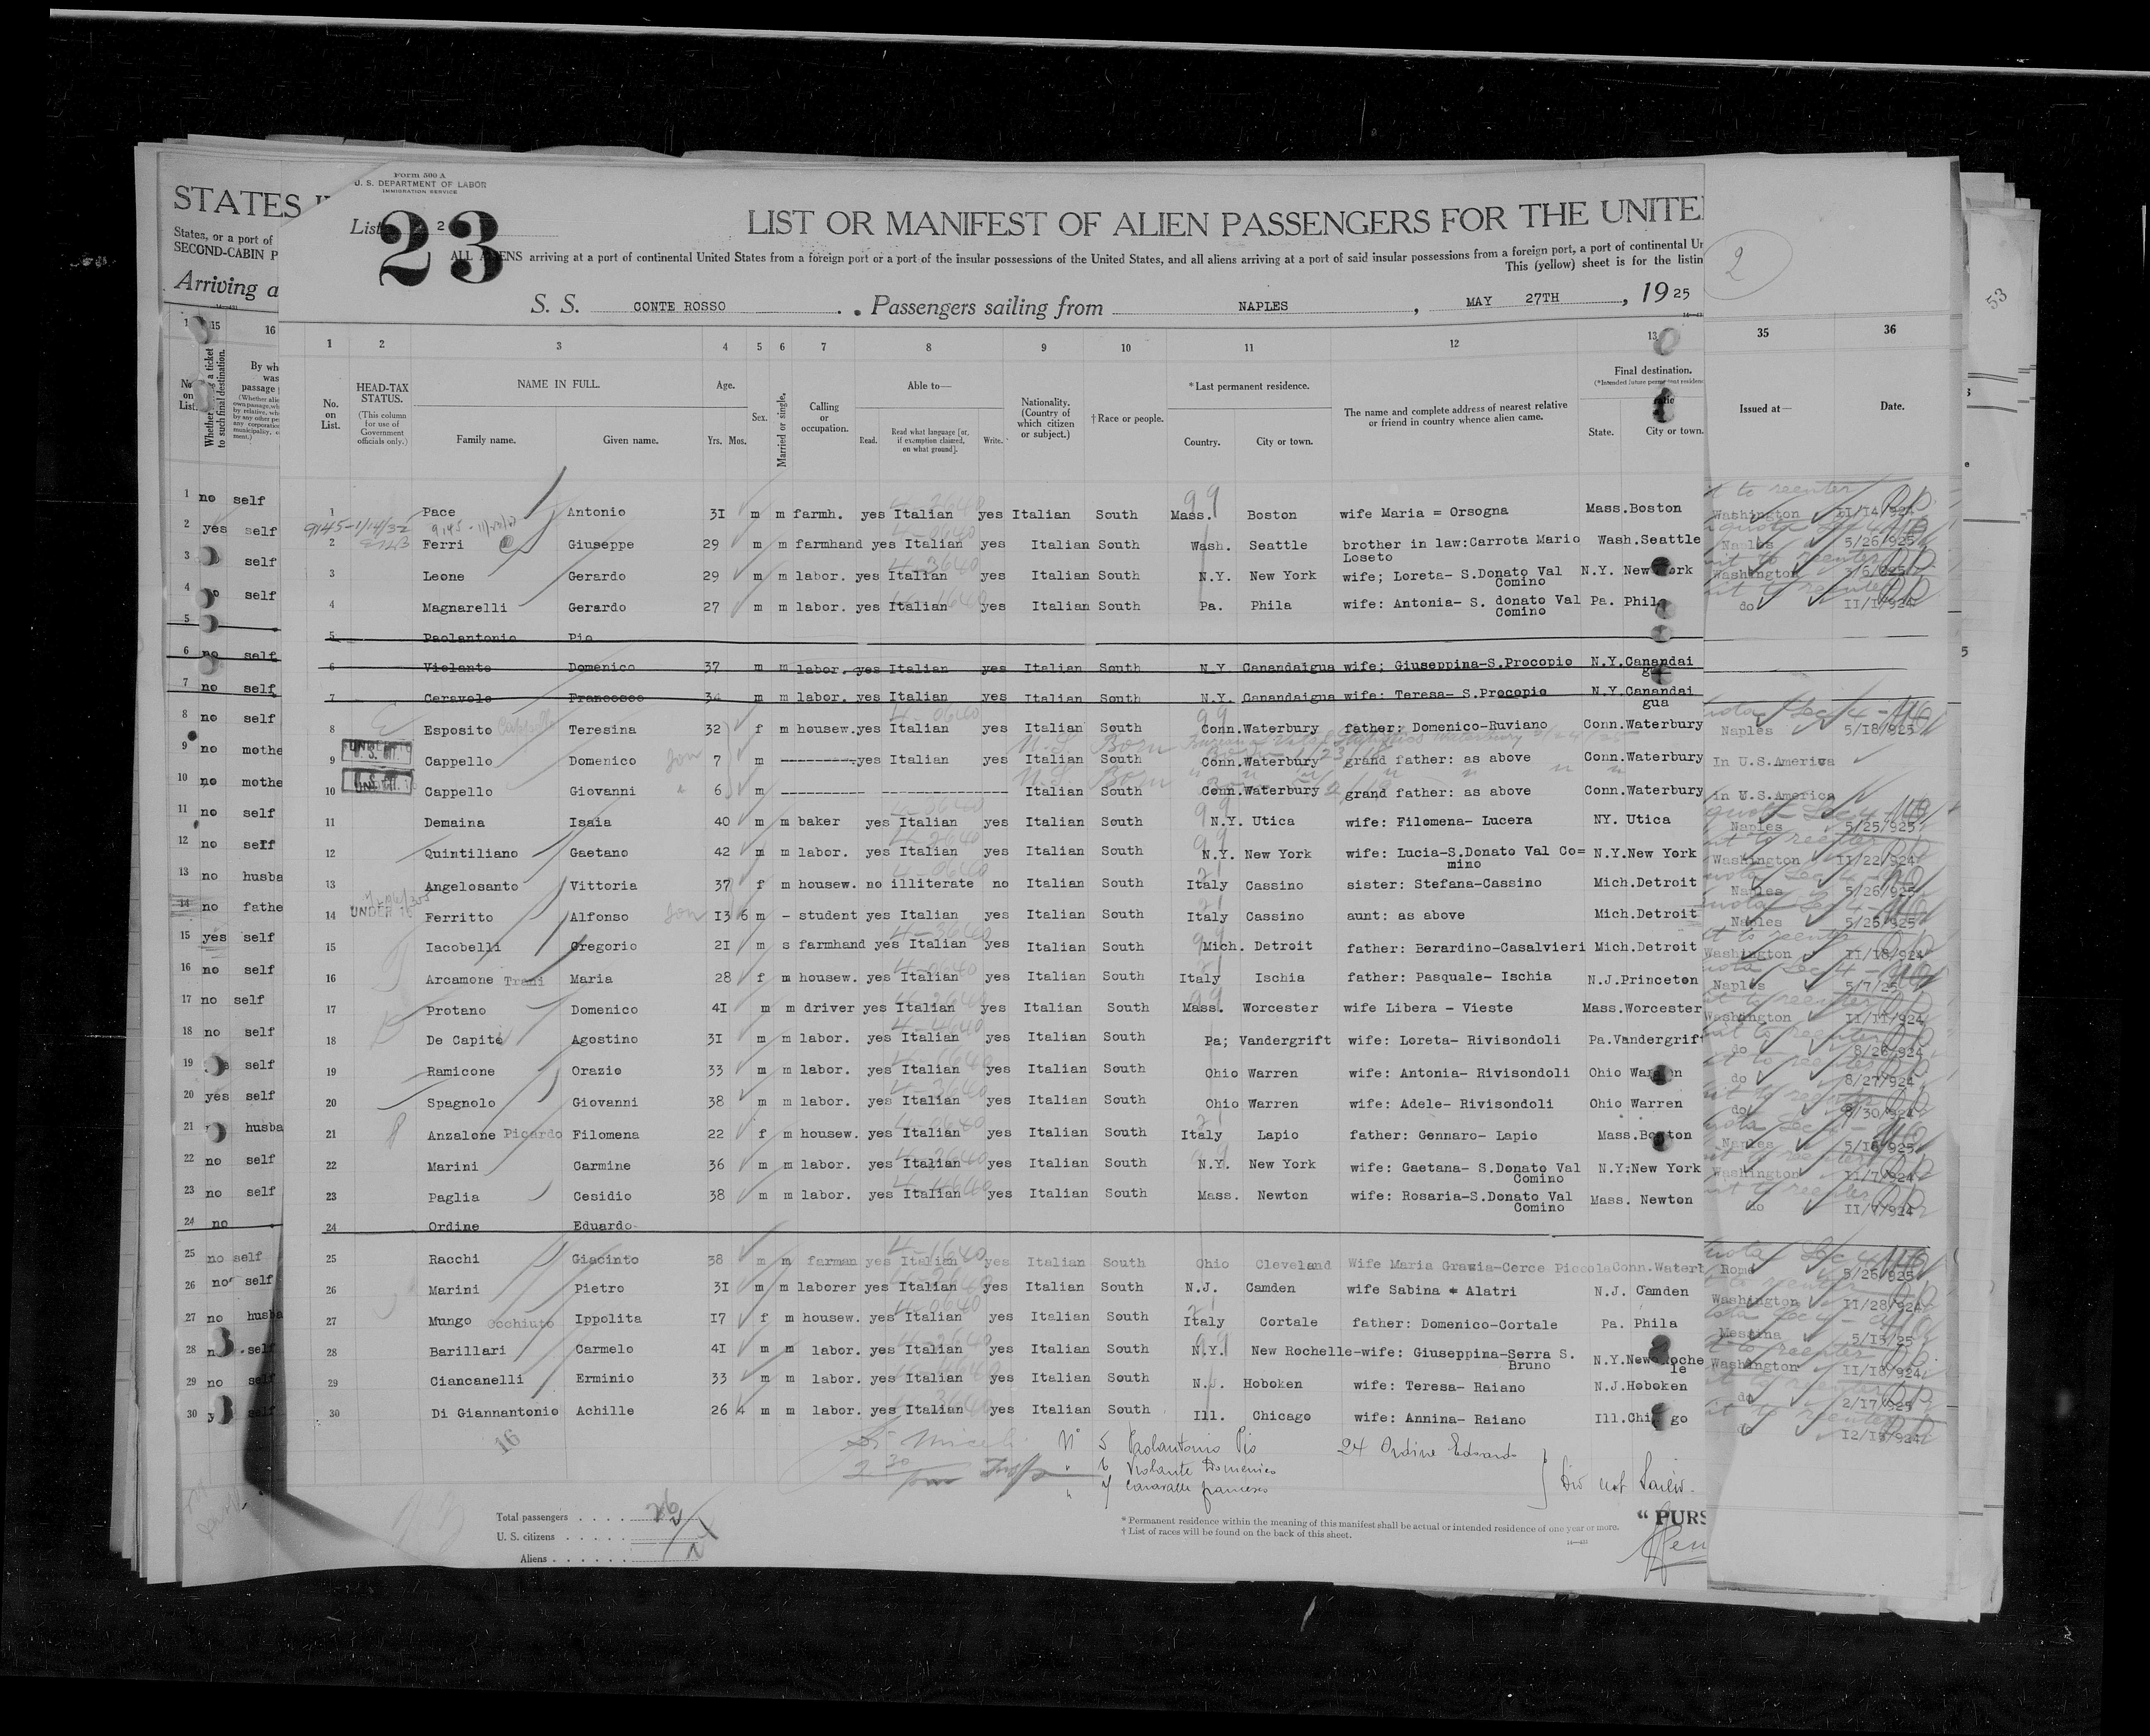 Form 500 A
U. S. DEPARTMENT OF LABOR
IMMIGRATION SERVICE
STATES
List 2
23
LIST OR MANIFEST OF ALIEN PASSENGERS FOR THE UNITE
States, or a port of
SECOND-CABIN P
ALL ALIENS arriving at a port of continental United States from a foreign port or a port of the insular possessions of the United States, and all aliens arriving at a port of said insular possessions from a foreign port, a port of continental Un
This (yellow) sheet is for the listin
2
53
Arriving a
S. S. CONTE ROSSO Passengers sailing from NAPLES, MAY 27TH, 1925
15 16 1 2 3 4 5 6 7 8 9 10 11 12 13 35 36
No. on List.
Whether a ticket to such final destination.
HEAD-TAX STATUS.
(This column for use of Government officials only.)
NAME IN FULL.
Family name. Given name.
Age.
Yrs. Mos.
Sex.
Married or single.
Calling or occupation.
Able to—
Read. Read what language [or, if exemption claimed, on what ground]. Write.
Nationality. (Country of which citizen or subject.)
† Race or people.
*Last permanent residence.
Country. City or town.
The name and complete address of nearest relative or friend in country whence alien came.
Final destination.
State. City or town.
Issued at— Date.
1 no self 1 Pace Antonio 31 m m farmh. yes Italian yes Italian South Mass. Boston wife Maria = Orsogna Mass.Boston Washington 11/14/924
9145-1/14/32
2 yes self 2 Ferri Giuseppe 29 m m farmhand yes Italian yes Italian South Wash. Seattle brother in law:Carrota Mario Loseto Wash.Seattle Naples 5/26/925
3 self 3 Leone Gerardo 29 m m labor. yes Italian yes Italian South N.Y. New York wife; Loreta- S.Donato Val Comino N.Y. New York Washington 3/6/925
4 self 4 Magnarelli Gerardo 27 m m labor. yes Italian yes Italian South Pa. Phila wife: Antonia- S. donato Val Comino Pa. Phila do 11/1/924
5 5 Paolantonio Pio
6 no self 6 Violante Domenico 37 m m labor. yes Italian yes Italian South N.Y. Canandaigua wife; Giuseppina-S.Procopio N.Y.Canandaigua
7 no self 7 Ceravolo Francesco 34 m m labor. yes Italian yes Italian South N.Y. Canandaigua wife: Teresa- S.Procopio N.Y.Canandaigua
8 no self 8 Esposito Cappello Teresina 32 f m housew.yes Italian yes Italian South Conn.Waterbury father: Domenico-Ruviano Conn.Waterbury Naples 5/18/925
U.S. Born
9 no mothe 9 U.S. CIT. Cappello Domenico son 7 m yes Italian yes Italian South Conn.Waterbury grand father: as above Conn.Waterbury In U.S.America
U.S. Born
10 no mothe 10 U.S. CIT. Cappello Giovanni " 6 m Italian South Conn.Waterbury grand father: as above Conn.Waterbury in U.S.America
11 no self 11 Demaina Isaia 40 m m baker yes Italian yes Italian South N.Y. Utica wife: Filomena- Lucera NY. Utica Naples 5/25/925
12 no self 12 Quintiliano Gaetano 42 m m labor. yes Italian yes Italian South N.Y. New York wife: Lucia-S.Donato Val Co=mino N.Y.New York Washington 11/22/924
13 no husba 13 Angelosanto Vittoria 37 f m housew. no illiterate no Italian South Italy Cassino sister: Stefana-Cassino Mich.Detroit Naples 5/26/925
14 no fathe 14 UNDER 16 Ferritto Alfonso son 13 6 m - student yes Italian yes Italian South Italy Cassino aunt: as above Mich.Detroit Naples 5/26/925
15 yes self 15 Iacobelli Gregorio 21 m s farmhand yes Italian yes Italian South Mich. Detroit father: Berardino-Casalvieri Mich.Detroit Washington 11/18/924
16 no self 16 Arcamone Trani Maria 28 f m housew. yes Italian yes Italian South Italy Ischia father: Pasquale- Ischia N.J.Princeton Naples 5/7/25
17 no self 17 Protano Domenico 41 m m driver yes Italian yes Italian South Mass. Worcester wife Libera - Vieste Mass.Worcester Washington 11/11/924
18 no self 18 De Capite Agostino 31 m m labor. yes Italian yes Italian South Pa; Vandergrift wife: Loreta- Rivisondoli Pa.Vandergrif do 8/26/924
19 self 19 Ramicone Orazio 33 m m labor. yes Italian yes Italian South Ohio Warren wife: Antonia- Rivisondoli Ohio Warren do 8/27/924
20 yes self 20 Spagnolo Giovanni 38 m m labor. yes Italian yes Italian South Ohio Warren wife: Adele- Rivisondoli Ohio Warren do /30/924
21 husba 21 Anzalone Picardo Filomena 22 f m housew. yes Italian yes Italian South Italy Lapio father: Gennaro- Lapio Mass.Boston Naples 5/16/925
22 no self 22 Marini Carmine 36 m m labor. yes Italian yes Italian South N.Y. New York wife: Gaetana- S.Donato Val Comino N.Y.New York Washington 11/7/924
23 no self 23 Paglia Cesidio 38 m m labor. yes Italian yes Italian South Mass. Newton wife: Rosaria-S.Donato Val Comino Mass. Newton do 11/7/924
24 no 24 Ordine Eduardo
25 no self 25 Racchi Giacinto 38 m m farman yes Italian yes Italian South Ohio Cleveland Wife Maria Grazia-Cerce Piccola Conn.Watert Rome 5/26/925
26 no self 26 Marini Pietro 31 m m laborer yes Italian yes Italian South N.J. Camden wife Sabina * Alatri N.J. Camden Washington 11/28/924
27 no husba 27 Mungo Occhiuto Ippolita 17 f m housew. yes Italian yes Italian South Italy Cortale father: Domenico-Cortale Pa. Phila Messina 5/15/25
28 self 28 Barillari Carmelo 41 m m labor. yes Italian yes Italian South N.Y. New Rochelle-wife: Giuseppina-Serra S. Bruno N.Y.New Rochelle Washington 11/18/924
29 no self 29 Ciancanelli Erminio 33 m m labor. yes Italian yes Italian South N.J. Hoboken wife: Teresa- Raiano N.J.Hoboken do 2/17/925
30 self 30 Di Giannantonio Achille 26 4 m m labor. yes Italian yes Italian South Ill. Chicago wife: Annina- Raiano Ill.Chicago do 12/19/924
16
N° 5 Paolantonio Pio 24 Ordine Edoardo
" 6 Violante Domenico
" 7 Caravalle francesco } Did not Sailed.
Total passengers . . . . 26
U. S. citizens . . . . .
Aliens . . . . . .
* Permanent residence within the meaning of this manifest shall be actual or intended residence of one year or more.
† List of races will be found on the back of this sheet.
"PURS